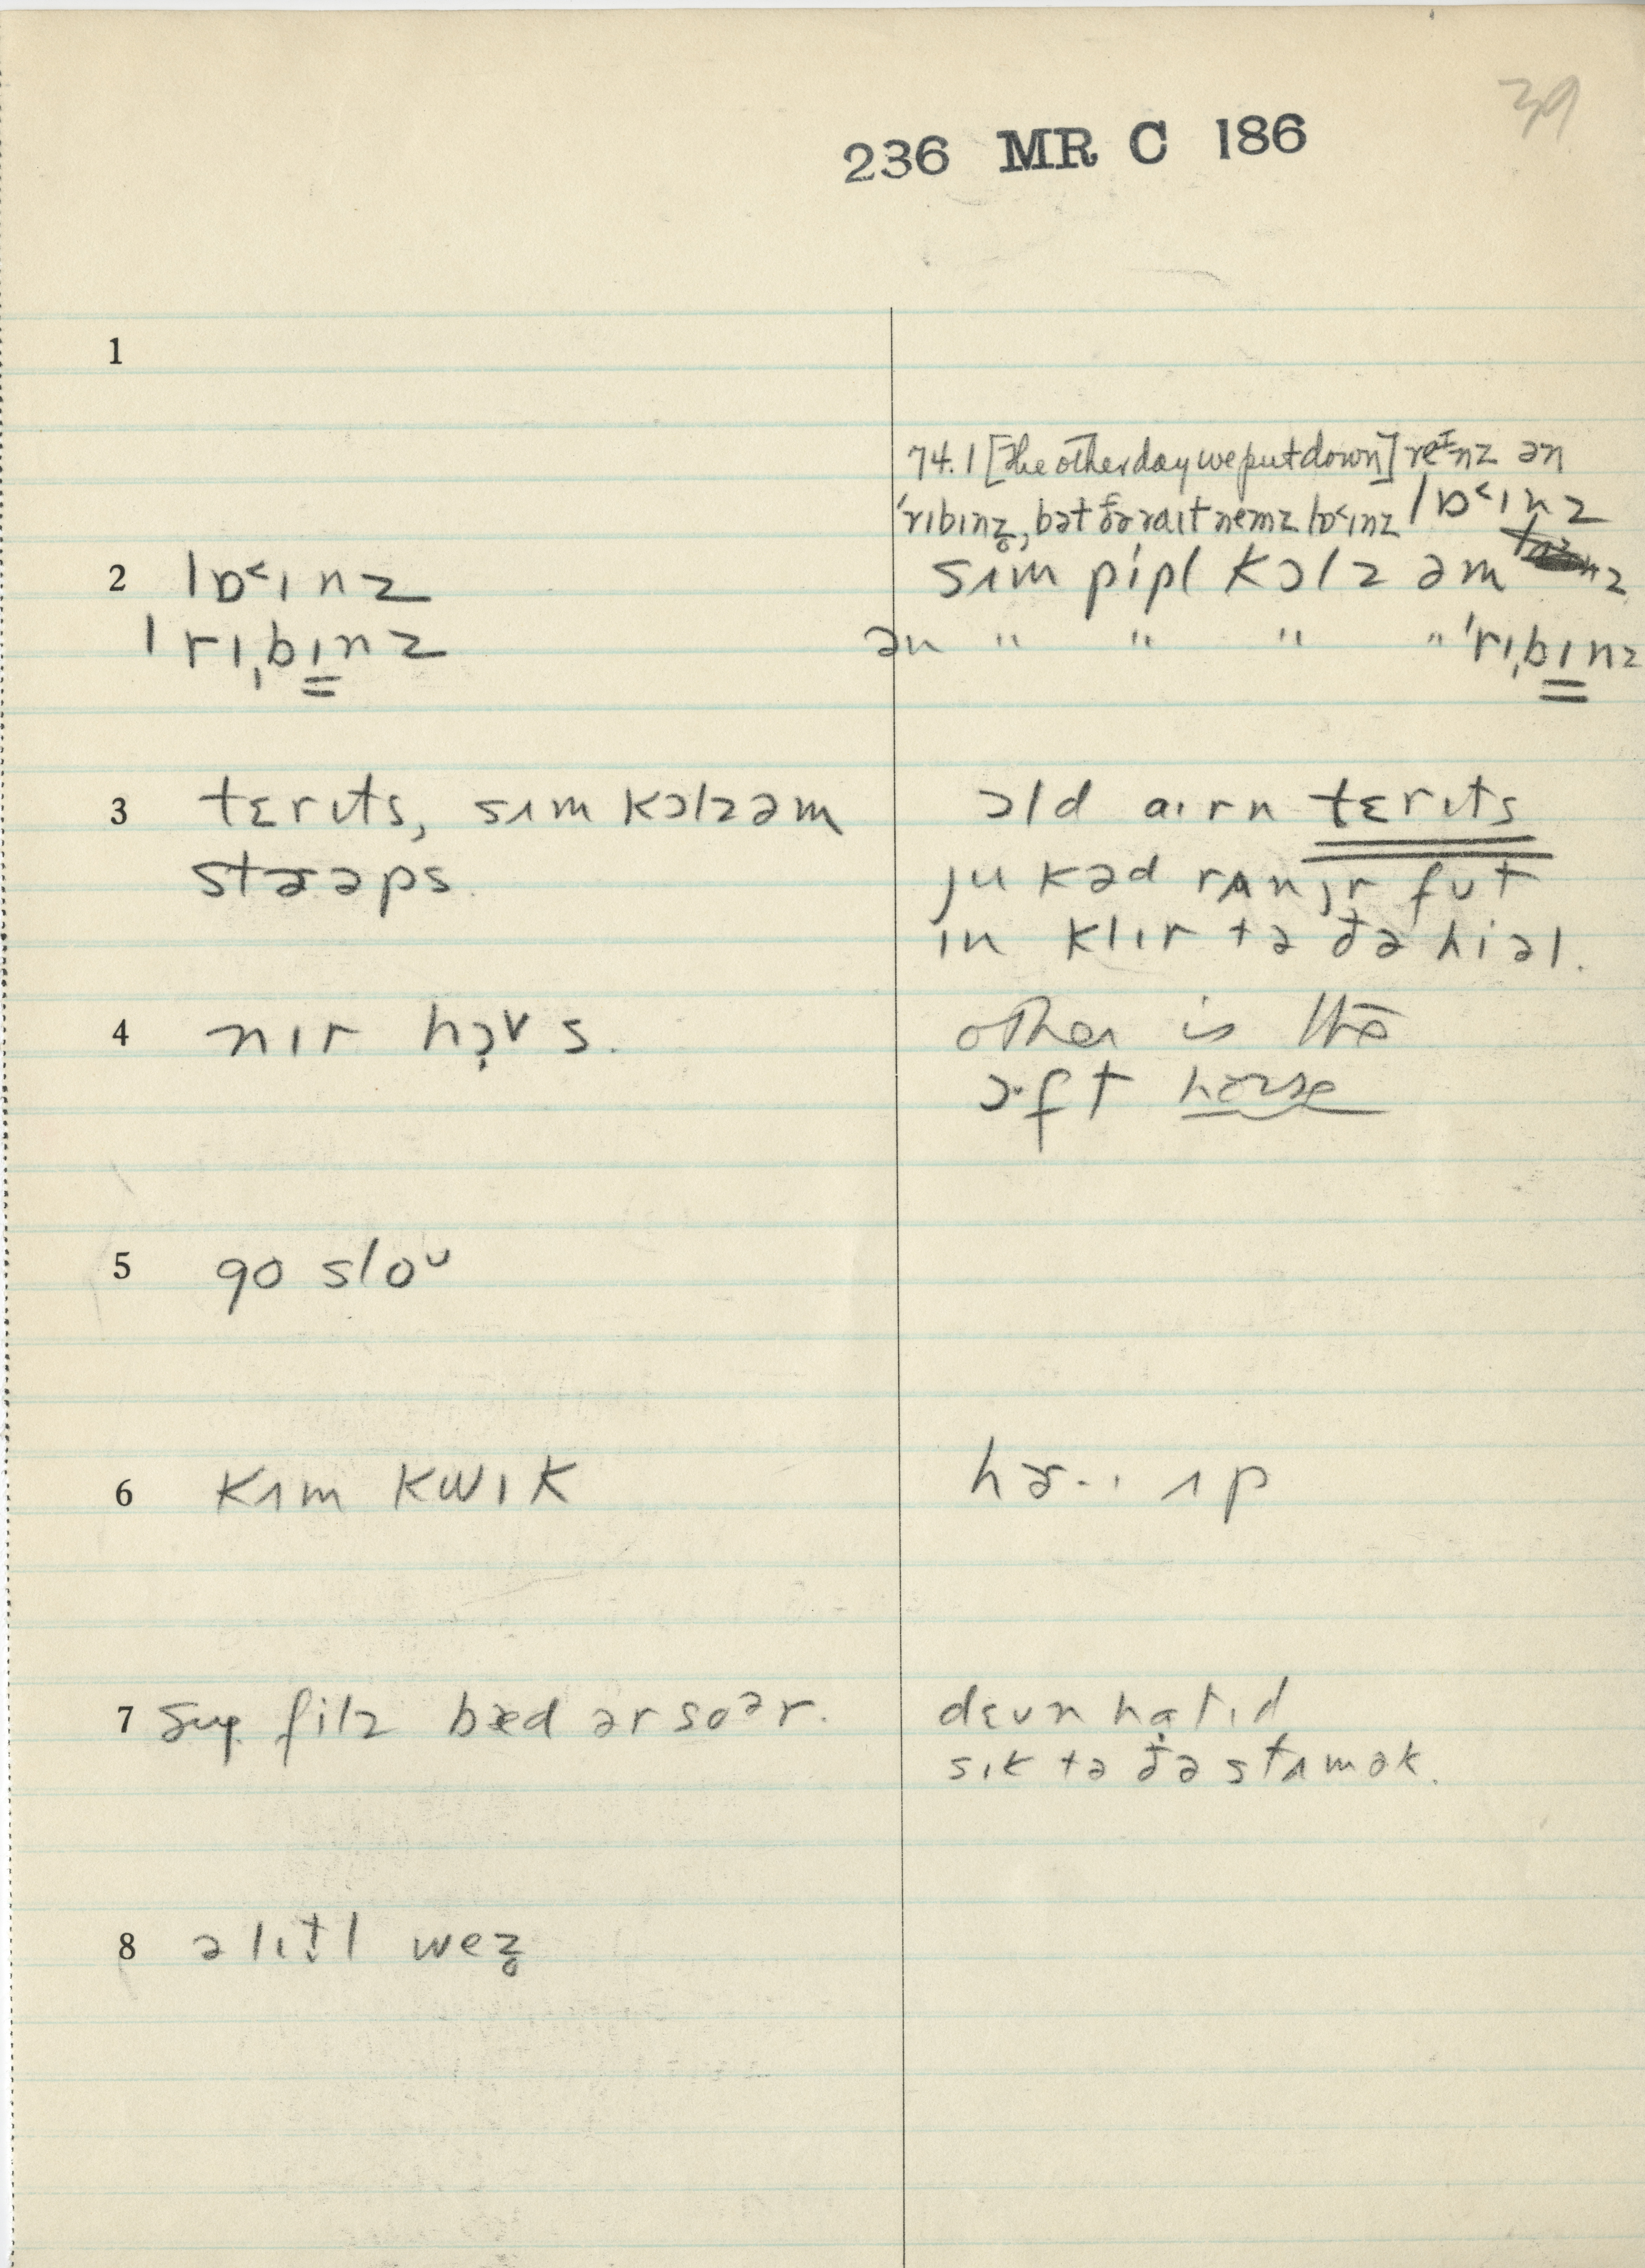 39
236 MR C 186
1
74.1 [the other day we put down] reᶦnz ən
ˈrɪbɪnz̥, bət ðə raɪt nemz lɒ˂ɪnz lɒ˂ɪnz
2 lɒ˂ɪnz
sʌm pipl kɔlz əm
ˈrɪˌbɪnz
ən " " " " ˈrɪˌbɪnz
3 tɛrɪts, sʌm kɔlz əm
stræəps.
ɔld aɪrn tɛrɪts
ju kəd rʌn jr fut
ɪn klɪr tə ðə hiəl.
4 nɪr hɔ̣vs.
other is the
ɔ·ft horse
5 go sloᶸ
6 kʌm kwɪk
hɚ·ɪ ʌp
7 ʃug filz bæd ər soᵊr.
dɛʊn hạtɪd
sɪk tə ðə stʌmək.
8 ə lɪt̬l wez̥